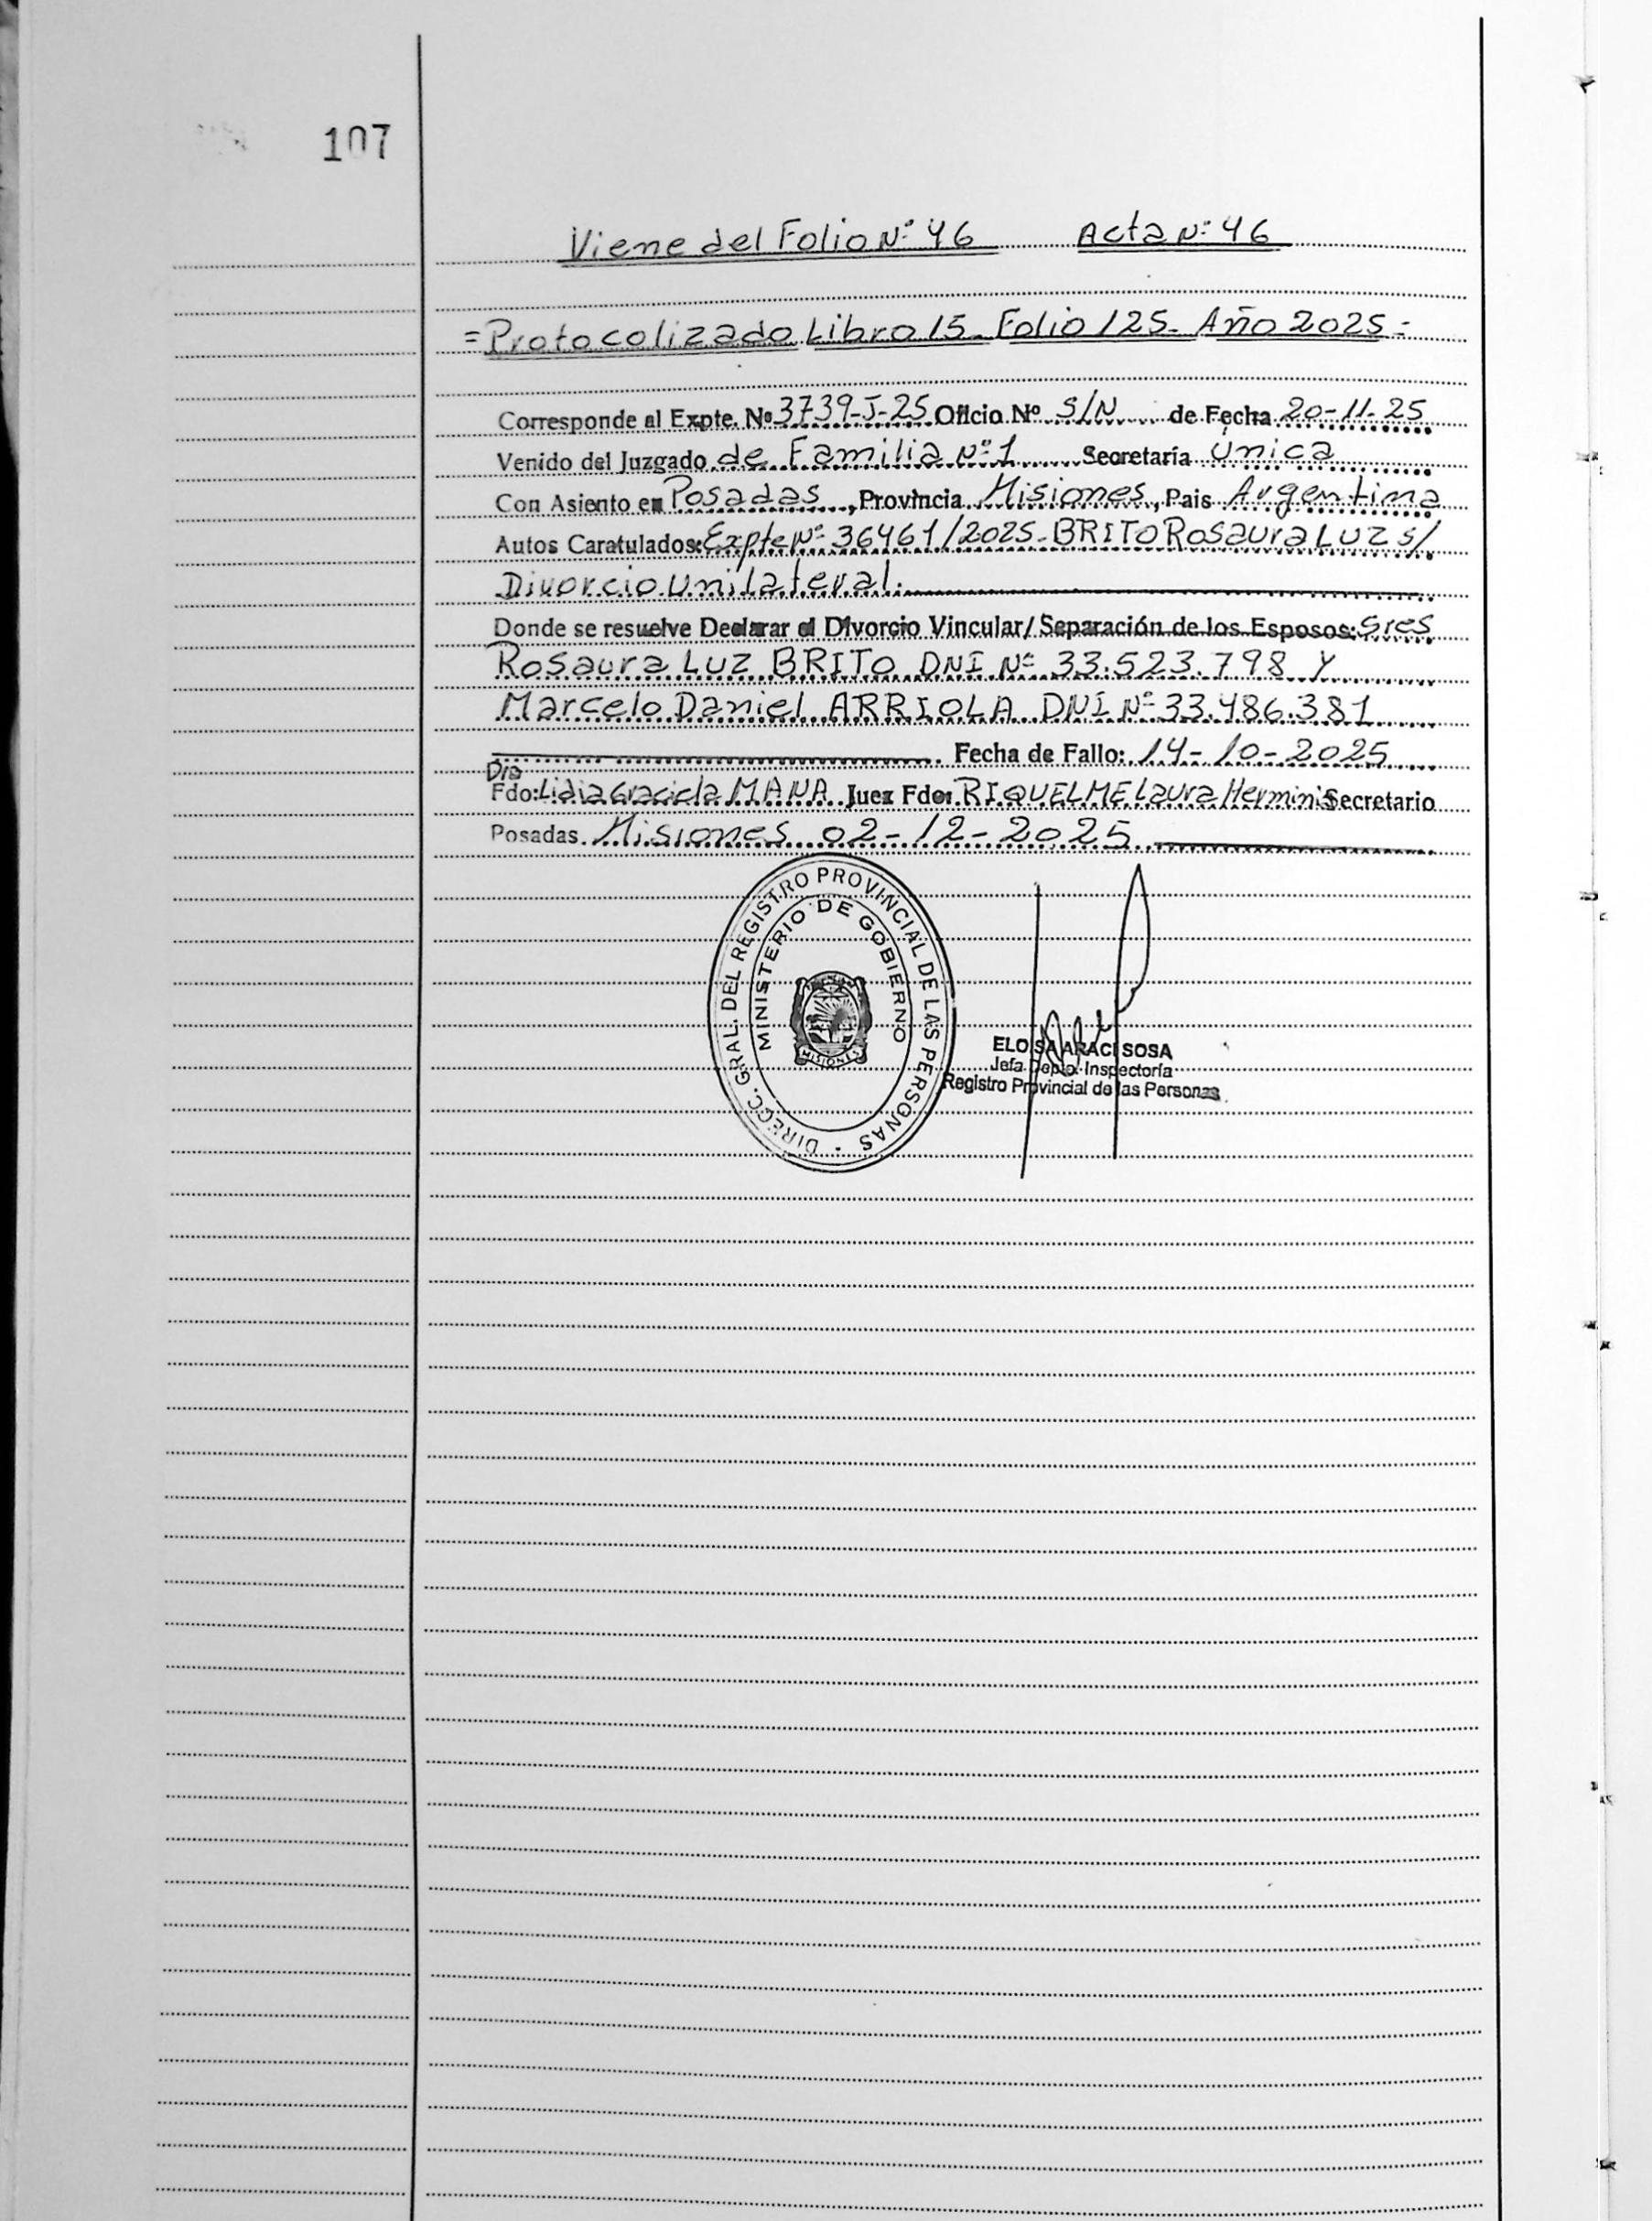 107
Viene del Folio Nº 46 Acta Nº 46
= Protocolizado Libro 15 - Folio 125 - Año 2025 =
Corresponde al Expte. Nº 3739-J-25 Oficio Nº S/N de Fecha 20-11-25
Venido del Juzgado de Familia Nº 1 Secretaría Única
Con Asiento en Posadas, Provincia Misiones, Pais Argentina
Autos Caratulados: Expte Nº 36461/2025 - BRITO Rosaura LUZ s/
Divorcio Unilateral.
Donde se resuelve Declarar el Divorcio Vincular/ Separación de los Esposos: Sres
Rosaura LUZ BRITO DNI Nº 33.523.798 Y
Marcelo Daniel ARRIOLA DNI Nº 33.486.381
Fecha de Fallo: 14-10-2025
Dra
Fdo: Lidia Graciela MANA Juez Fdo: RIQUELME Laura Herminia Secretario
Posadas Misiones 02-12-2025
DIRECC. GRAL. DEL REGISTRO PROVINCIAL DE LAS PERSONAS -
MINISTERIO DE GOBIERNO
MISIONES
ELOISA ARACI SOSA
Jefa Depto. Inspectoría
Registro Provincial de las Personas